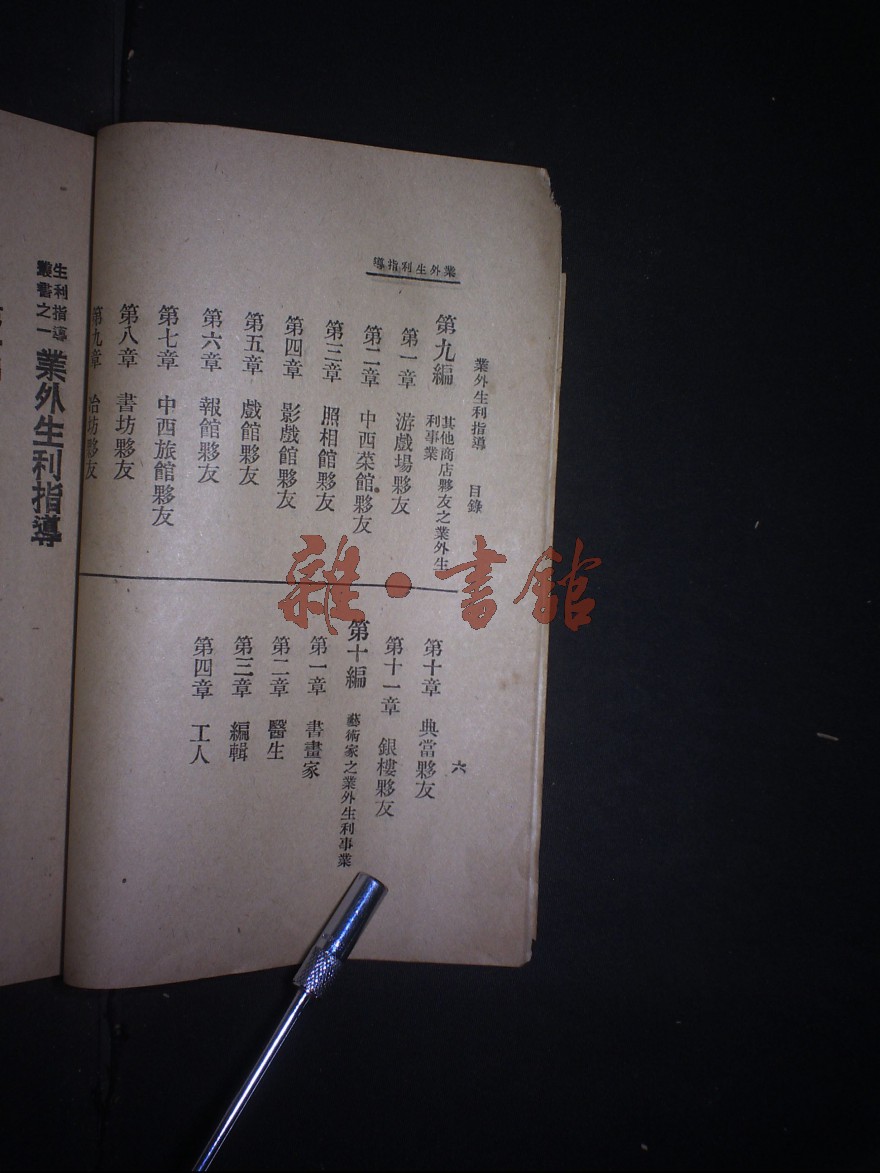 業外生利指導
業外生利指導 目錄 六
第九編 其他商店夥友之業外生利事業
第一章 游戲場夥友
第二章 中西菜館夥友
第三章 照相館夥友
第四章 影戲館夥友
第五章 戲館夥友
第六章 報館夥友
第七章 中西旅館夥友
第八章 書坊夥友
第九章 坊夥友
第十章 典當夥友
第十一章 銀樓夥友
第十編 藝術家之業外生利事業
第一章 書畫家
第二章 醫生
第三章 編輯
第四章 工人
生利指導叢書之一 業外生利指導
雜·書館